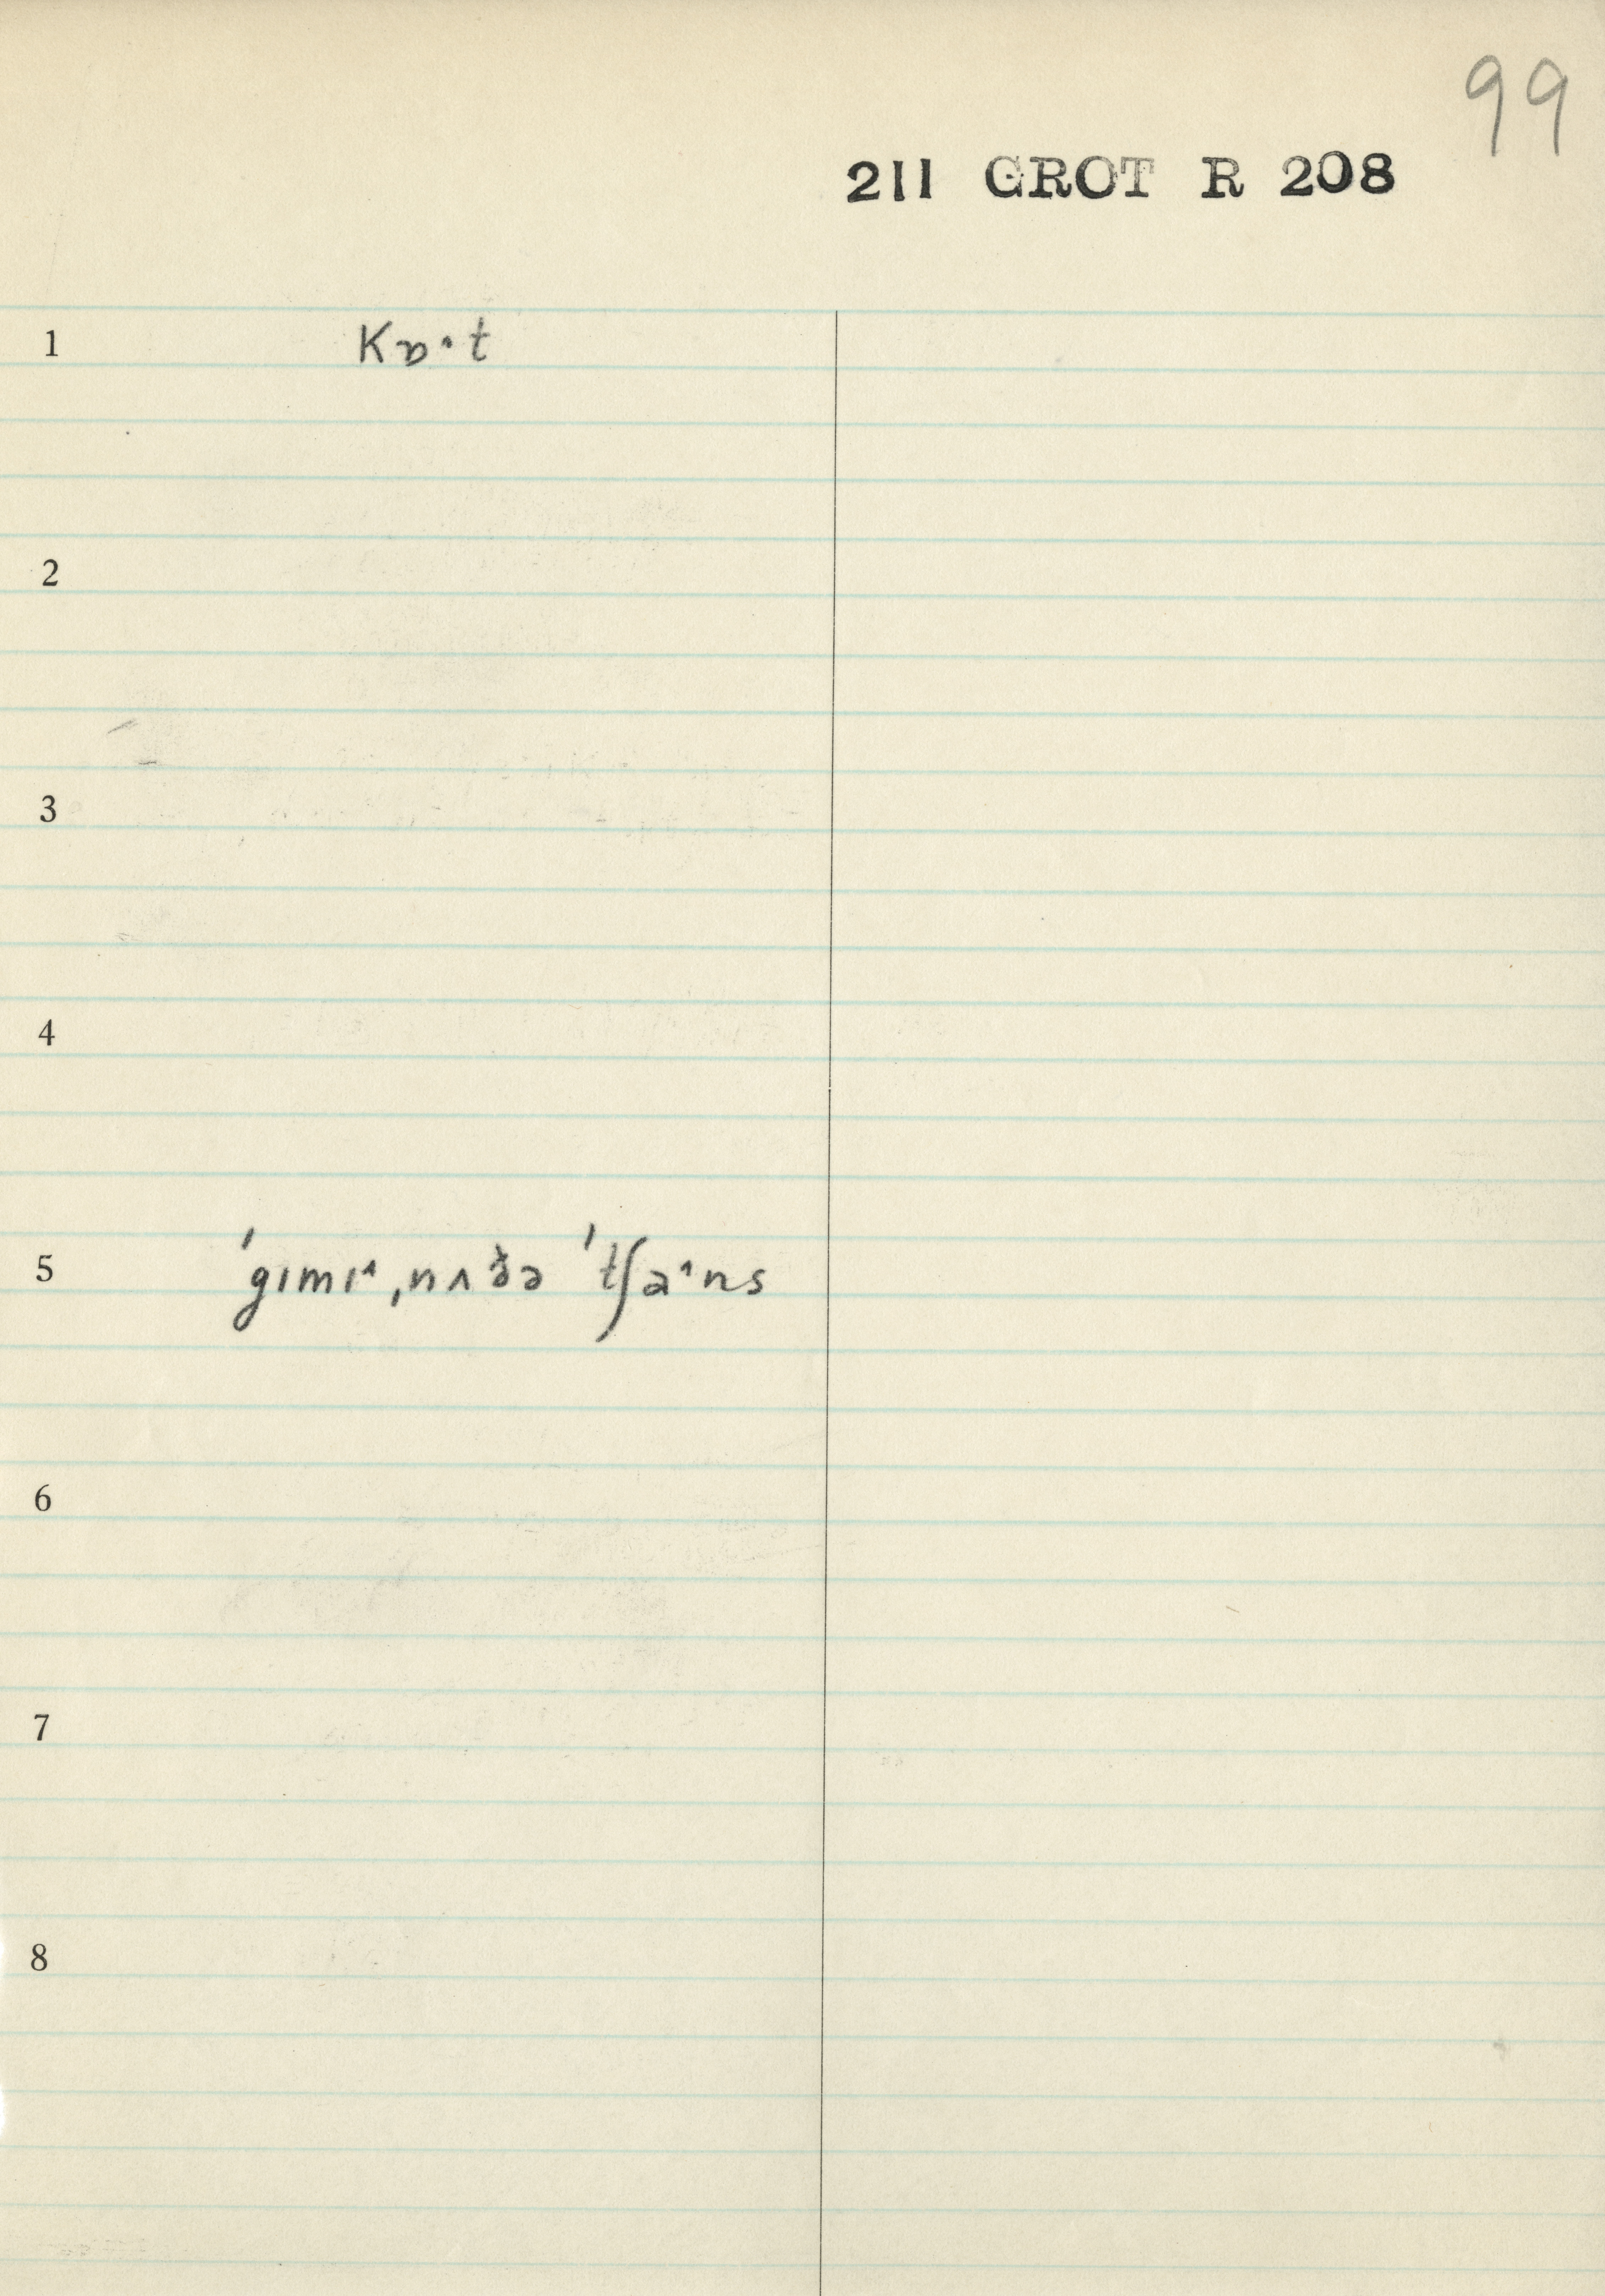 99
211 GROT R 208
1 kɒ·t
2
3
4
5 ˈgɪmɪ˄ ˌnʌðə ˈtʃa˄ns
6
7
8